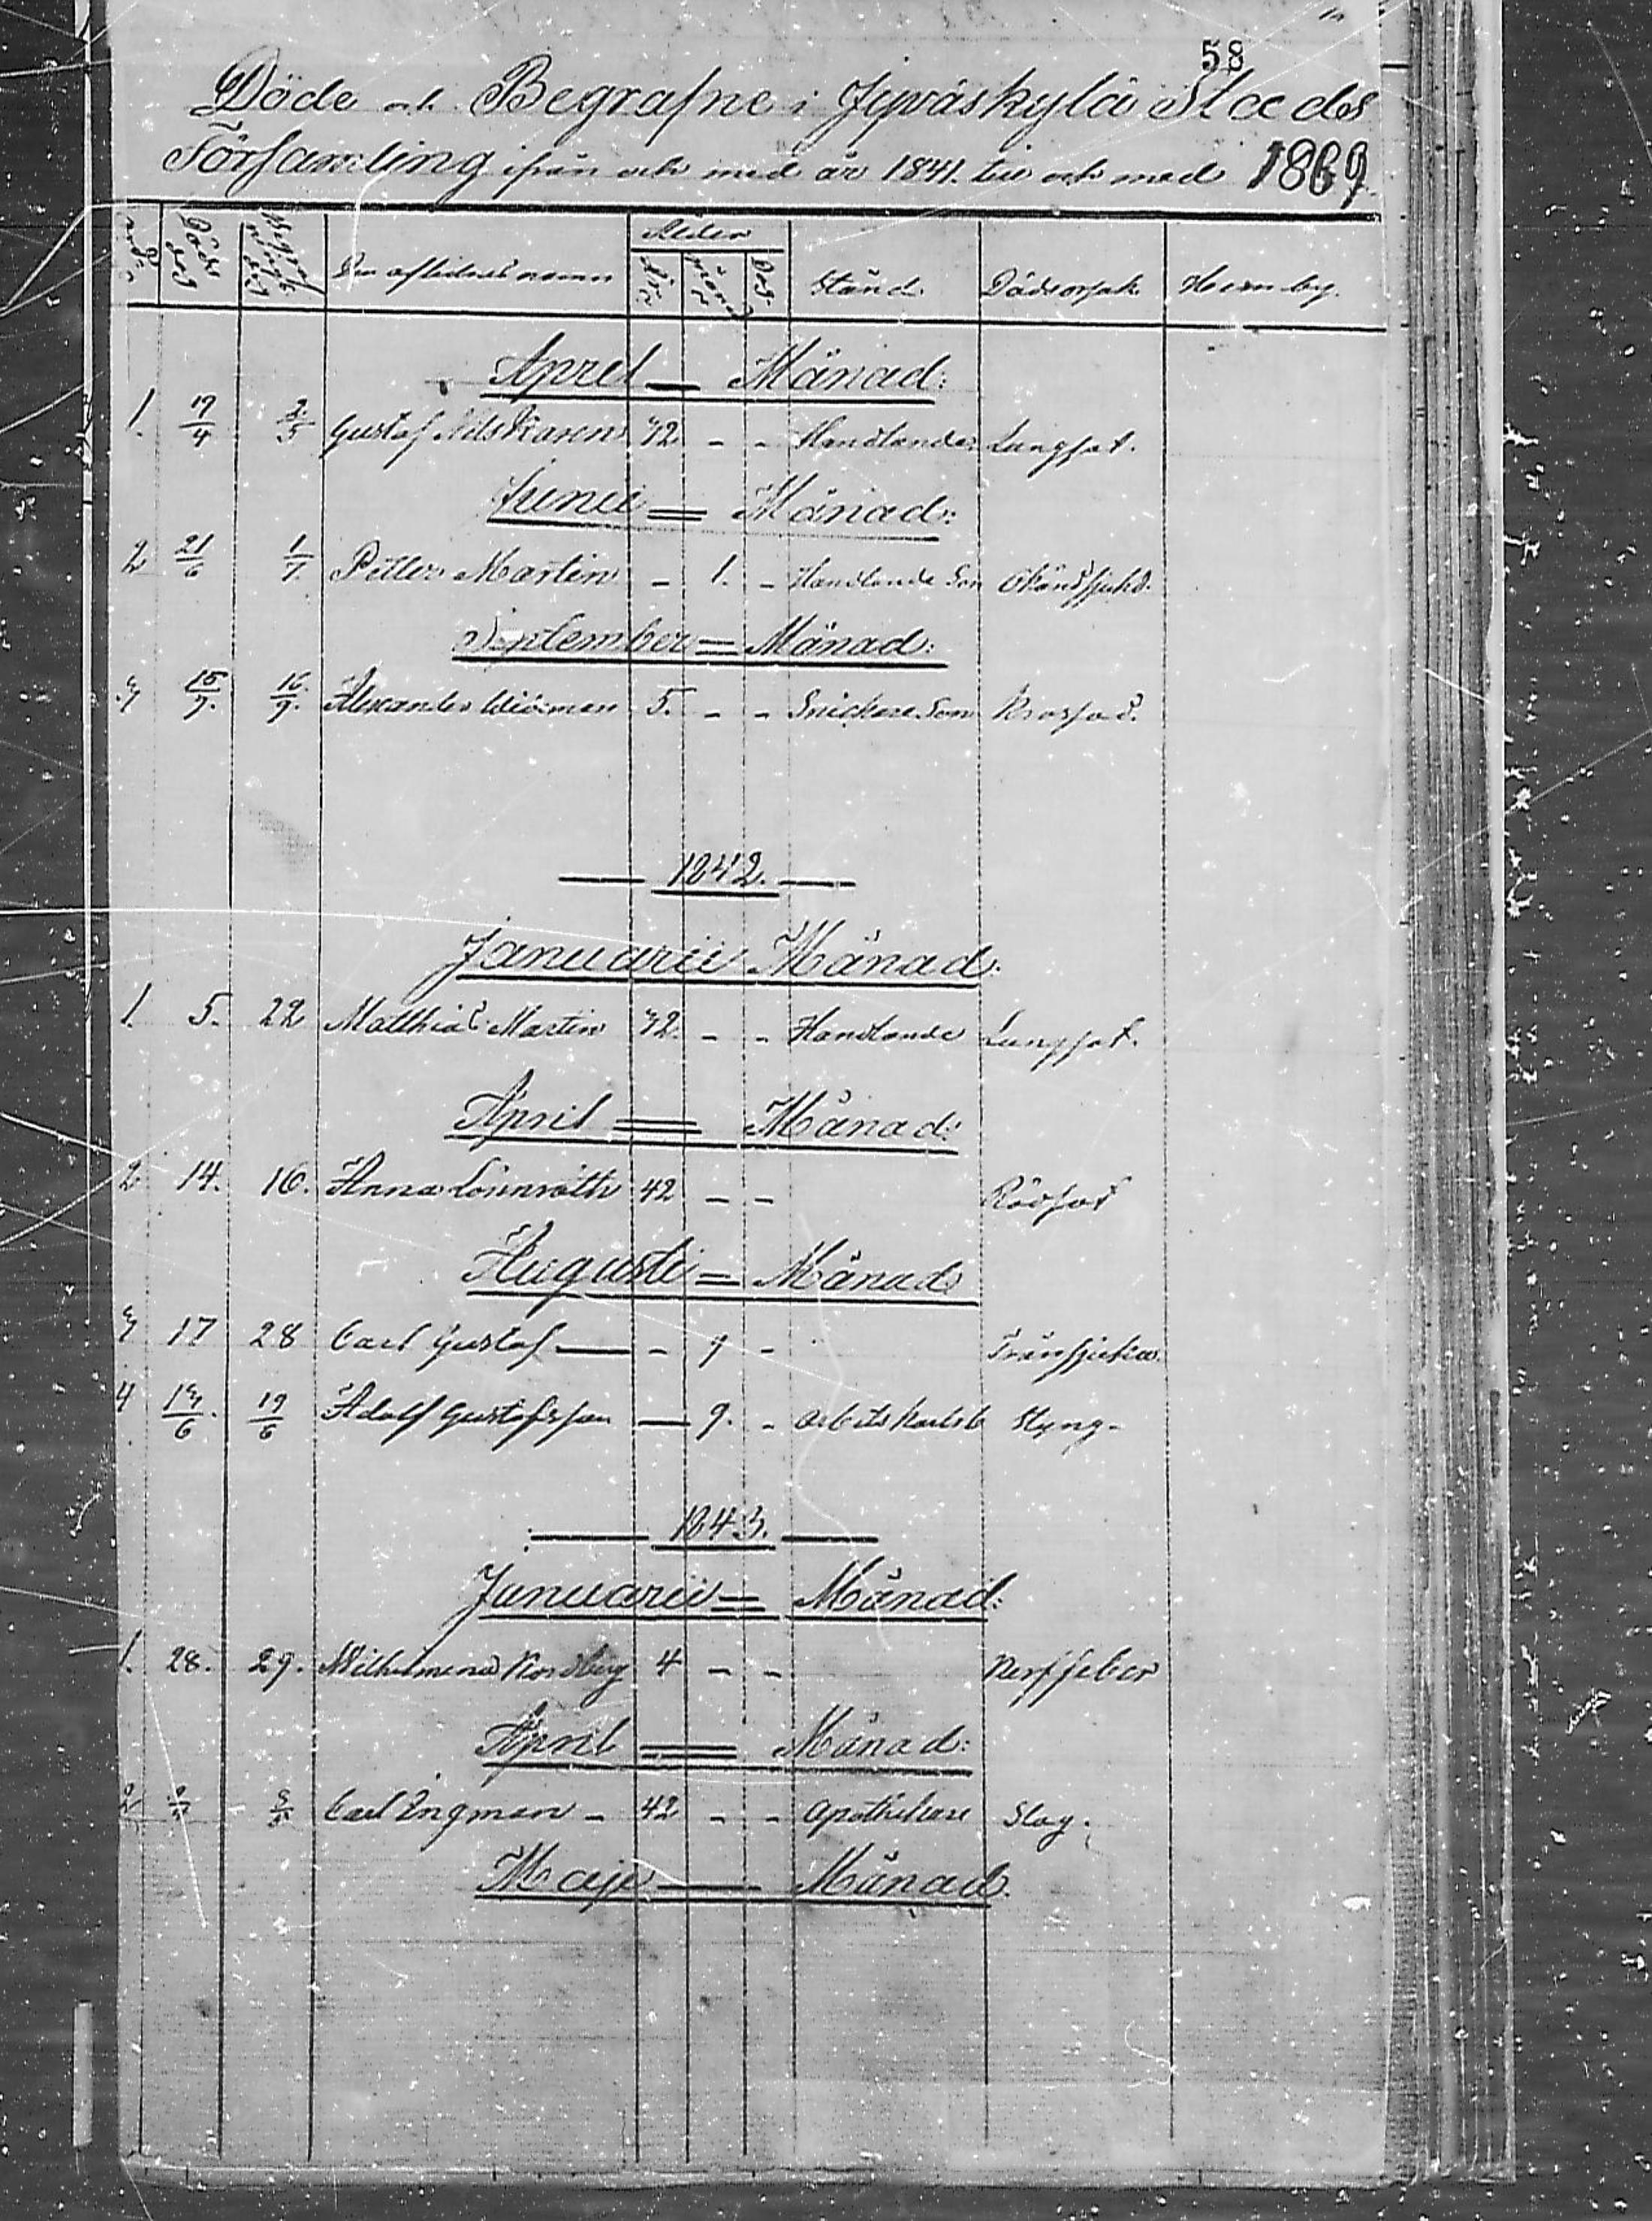 58
Döde och Begrafne i Jyväskylä Stads
Församling ifrån och med år 1841. till och med 1869.
Död Begraf Den aflednes namn Ålder År Dag. Stånd. Dödsorsak. Hemby.
April — Månad:
1. 19/4 2/5 Gustaf Nils Karen 32 - - Handlande Lungsot.
Junii = Månad:
2 21/6 1/7. Petter Martin - 1. - Handlande Son Okänd sjukd.
September = Månad:
3 15/9. 16/9. Alexander Widman 5. - - Snickare Son Rossod.
— 1842. —
Januarii Månad:
1. 5. 22 Matthias Martin 32. - - Handlande Lungsot.
April = Månad:
2 14. 16. Anna Lönnroth 42 - - Rödsot
Augusti = Månad
3 17 28 Carl Gustaf — - 9 -
4 13/6. 19/6 Adolf Gustafsson — 9. - Arbetskarls Styng-
— 1843. —
Januarii = Månad:
1. 28. 29. Wilhelmina Nordberg 4 - - Nerffeber
April = Månad:
2 Carl Ingman - 42 - - Apothekare Slag.
Maji — Månad.